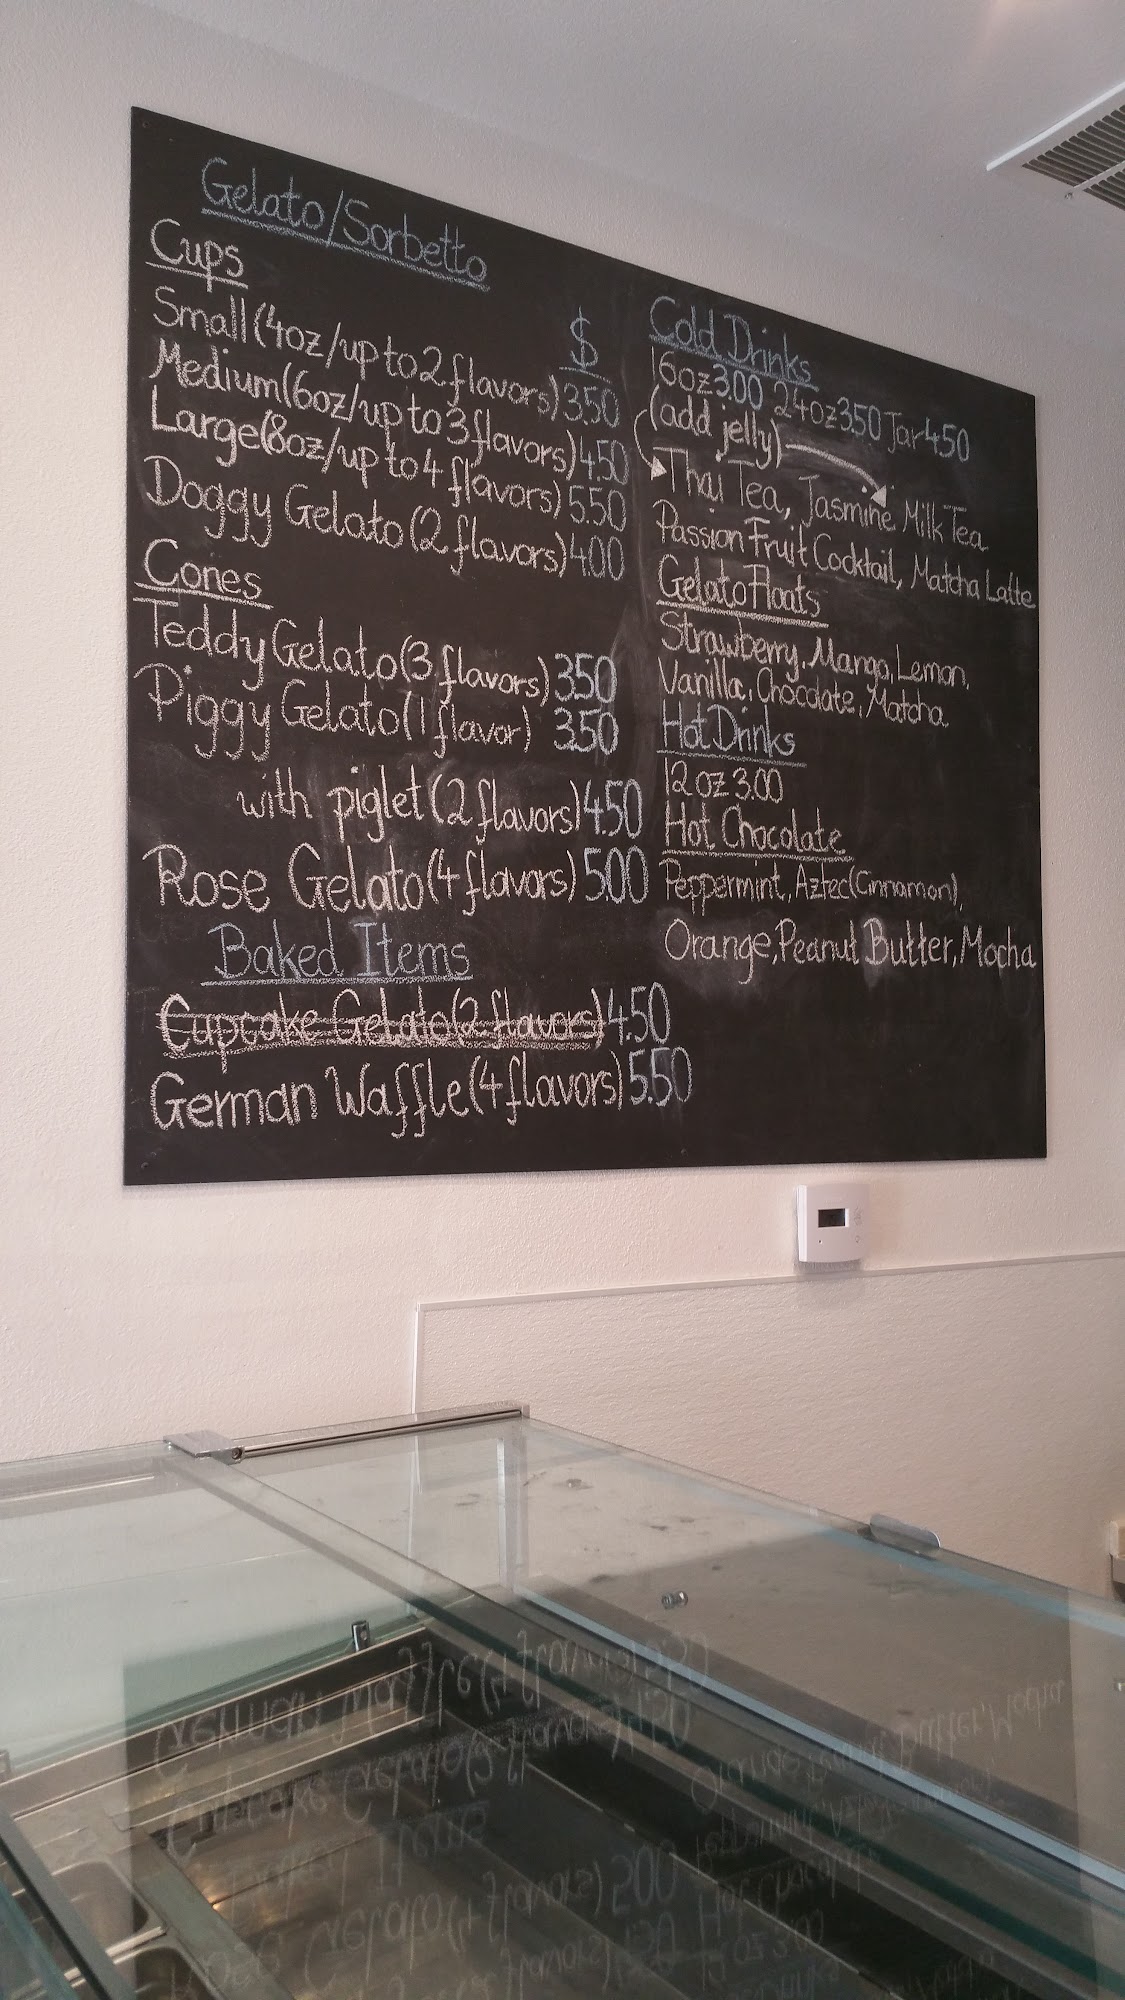 Gelato/Sorbetto
Cups
$
Small (4oz/up to 2 flavors) 3.50
Medium (6oz/up to 3 flavors) 4.50
Large (8oz/up to 4 flavors) 5.50
Doggy Gelato (2 flavors) 4.00
Cones
Teddy Gelato (3 flavors) 3.50
Piggy Gelato (1 flavor) 3.50
with piglet (2 flavors) 4.50
Rose Gelato (4 flavors) 5.00
Baked Items
Cupcake Gelato (2 flavors) 4.50
German Waffle (4 flavors) 5.50
Cold Drinks
16oz 3.00 24oz 3.50 Jar 4.50
(add jelly)
Thai Tea, Jasmine Milk Tea
Passion Fruit Cocktail, Matcha Latte
Gelato Floats
Strawberry, Mango, Lemon,
Vanilla, Chocolate, Matcha
Hot Drinks
12oz 3.00
Hot Chocolate
Peppermint, Aztec (Cinnamon),
Orange, Peanut Butter, Mocha